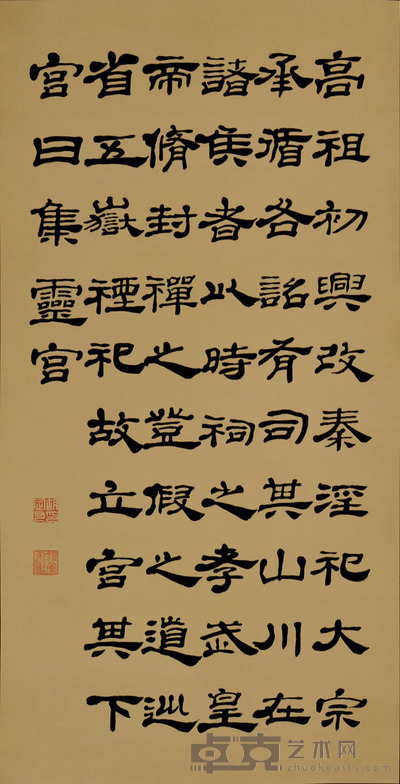 高祖初興改秦淫祀大宗
承循各詔有司其山川在
諸矦者以時祠之孝武皇
帝脩封禪之禮假之道巡
省五嶽禋祀故立宮其下
宮曰集靈宮
卓克艺术网
zhuokearts.com